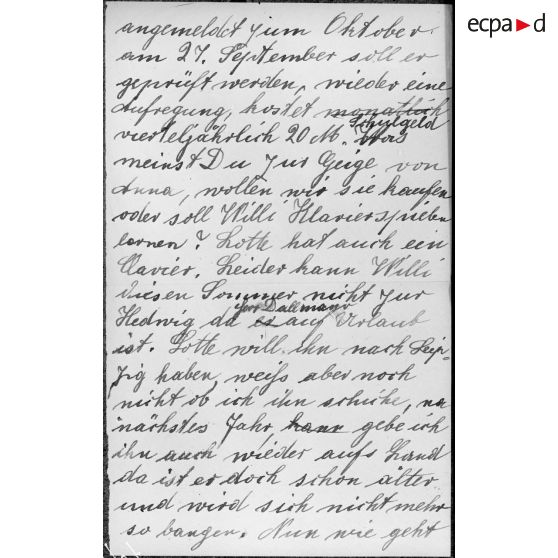 ecpad
angemeldet zum Oktober.
am 27. September soll er
geprüft werden, wieder eine
Aufregung, kostet monatlich
Schulgeld
vierteljährlich 20 M. Was
meinst Du zur Geige von
Anna, wollen wir sie kaufen
oder soll Willi Klavierspielen
lernen? Lotte hat auch ein
Clavier. Leider kann Willi
diesen Sommer nicht zur
Frr Dallmayr
Hedwig da es auf Urlaub
ist. Lotte will ihn nach Leip-
zig haben, weiß aber noch
nicht ob ich ihn schicke, na
nächstes Jahr kann gebe ich
ihn auch wieder aufs Land
da ist er doch schon älter
und wird sich nicht mehr
so bangen. Nun wie geht